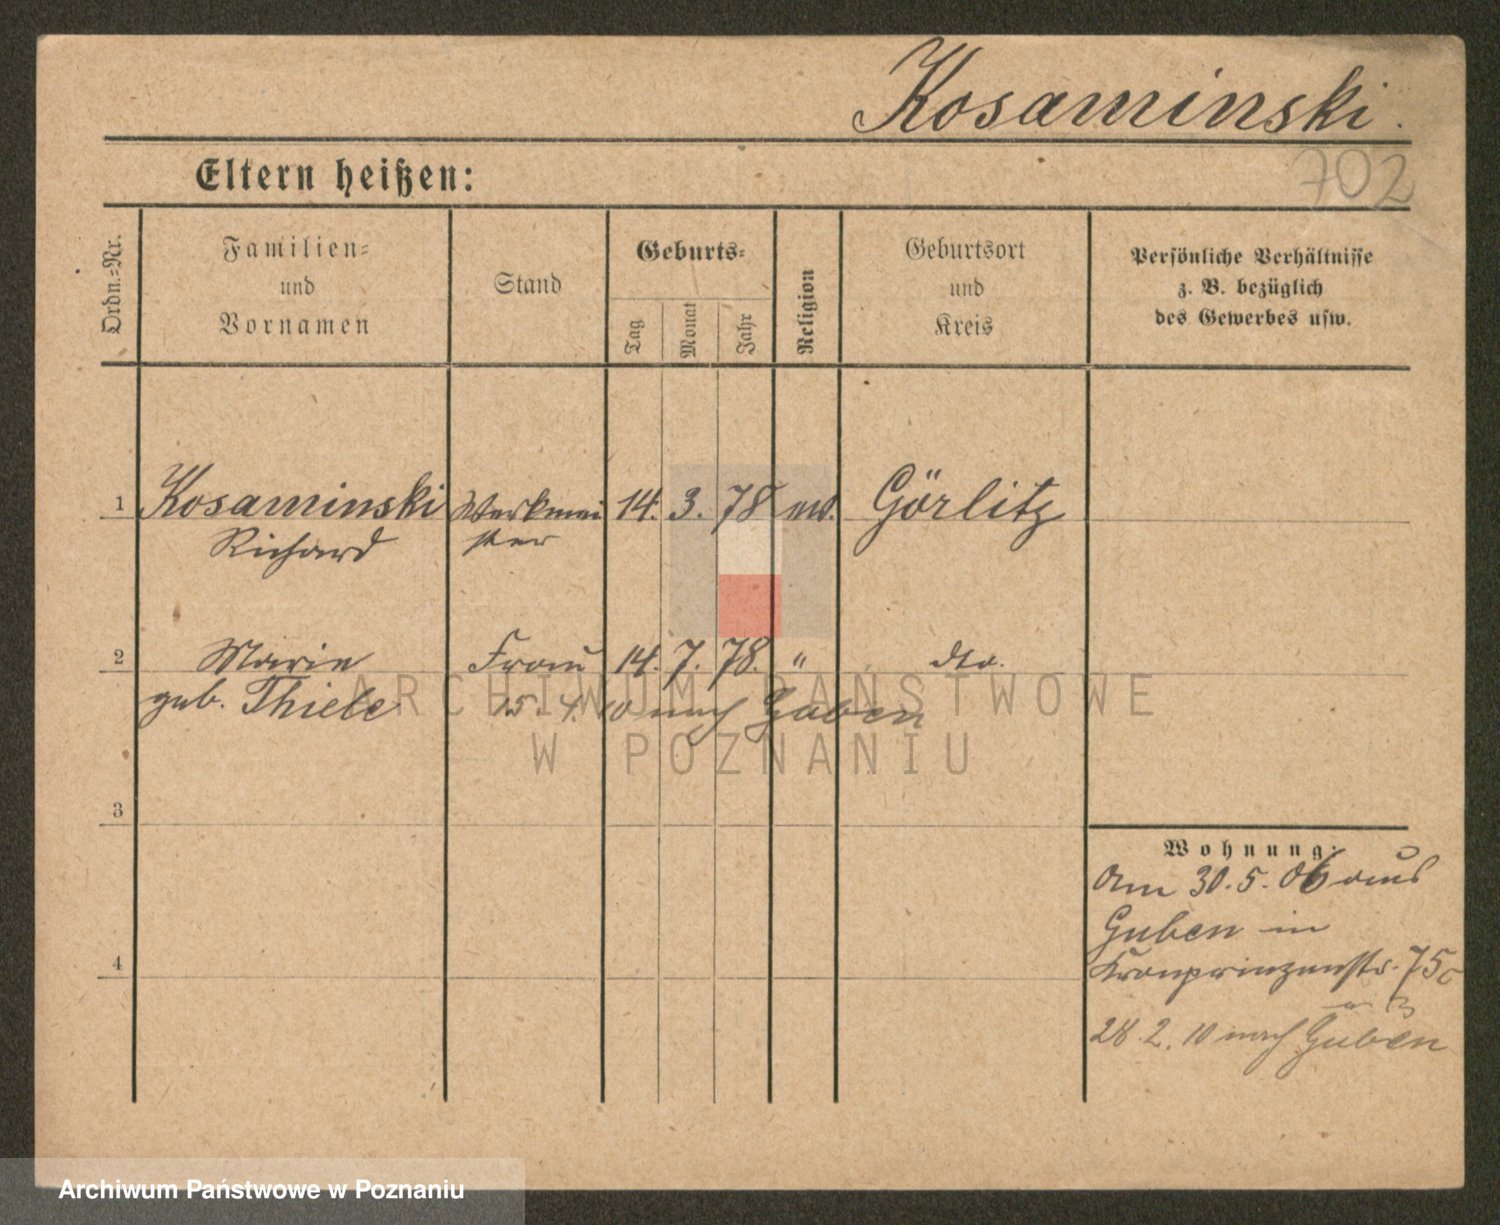 Kosaminski.
702
Eltern heißen:
Ordn.=Nr.
Familien=
und
Vornamen
Stand
Geburts=
Tag
Monat
Jahr
Religion
Geburtsort
und
Kreis
Persönliche Verhältnisse
z. B. bezüglich
des Gewerbes usw.
1 Kosaminski Werkmei 14. 3. 78 Görlitz
Richard ster
2 Marie Frau 14. 7. 78. " dto.
geb. Thiele 15. 4. 10 nach Guben
3
Wohnung:
Am 30. 5. 06 aus
Guben in
4
Kronprinzenstr. 75c
28. 2. 10 nach Guben
ARCHIWUM PAŃSTWOWE
W POZNANIU
Archiwum Państwowe w Poznaniu